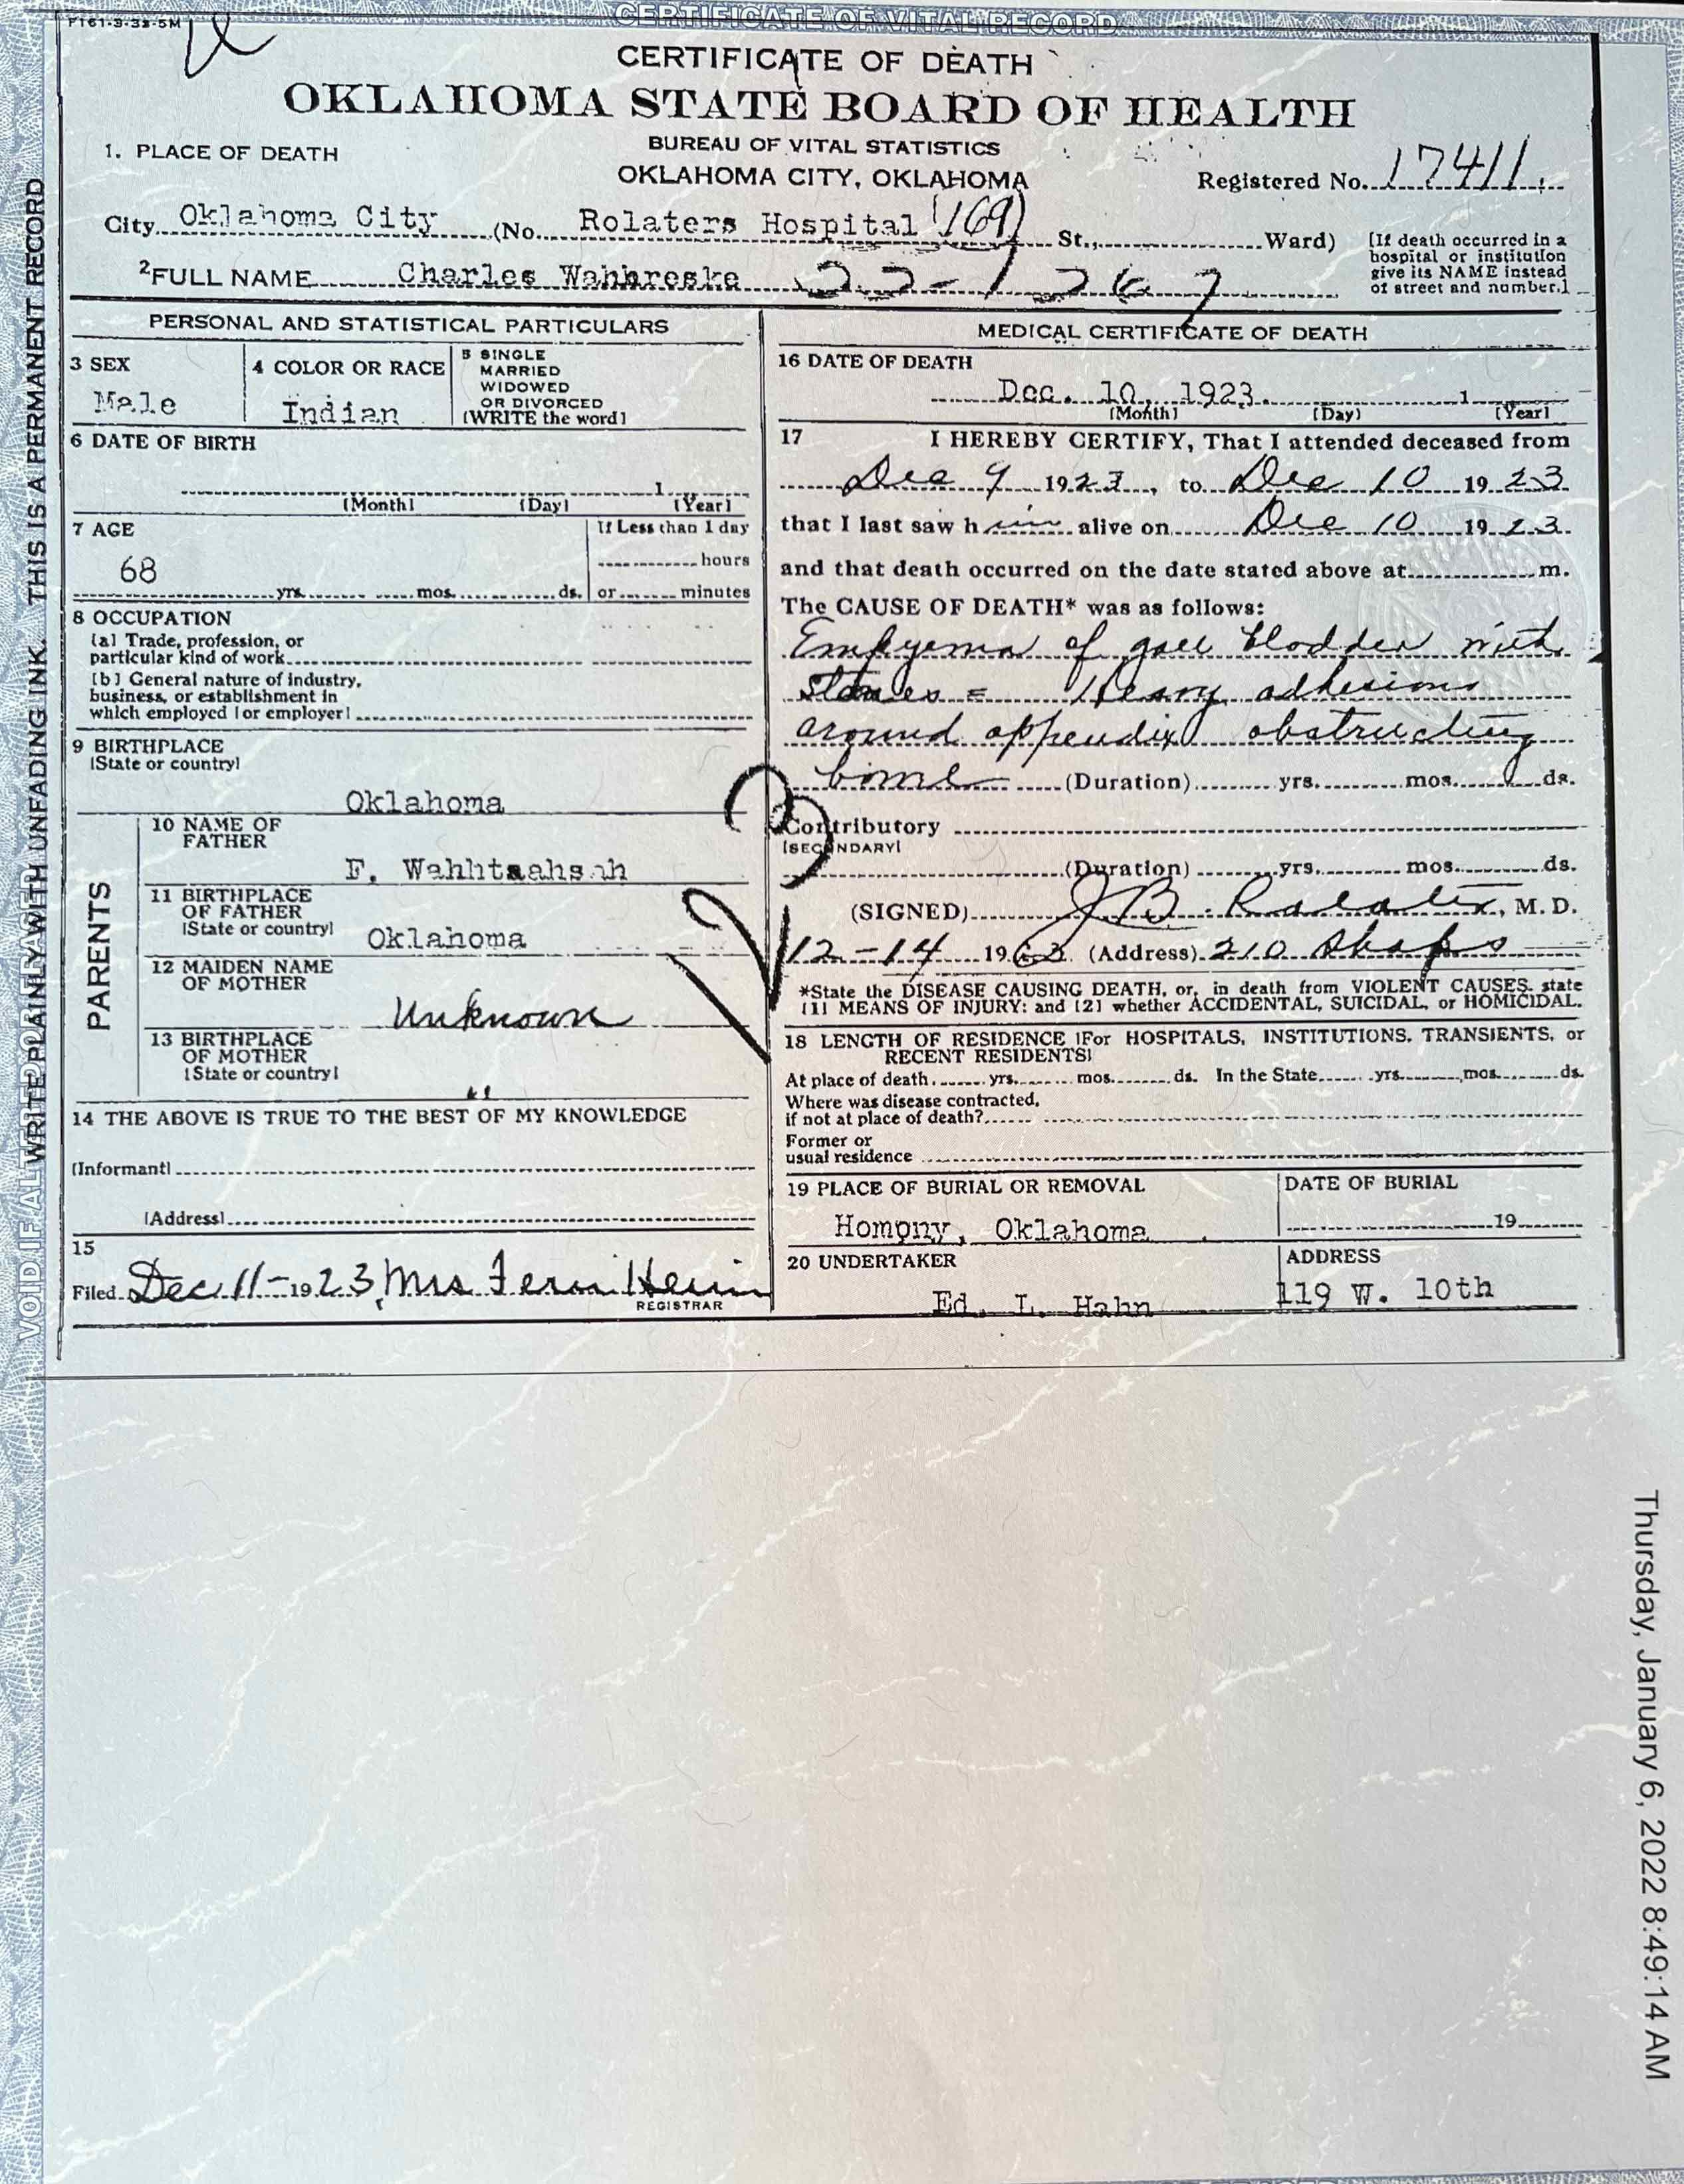 CERTIFICATE OF VITAL RECORD
F161-3-33-5M
CERTIFICATE OF DEATH
OKLAHOMA STATE BOARD OF HEALTH
BUREAU OF VITAL STATISTICS
OKLAHOMA CITY, OKLAHOMA
1. PLACE OF DEATH
Registered No. 17411
City Oklahoma City (No. Rolaters Hospital (169) St., Ward)
[If death occurred in a hospital or institution give its NAME instead of street and number.]
2 FULL NAME Charles Wahhreske 22-1267
PERSONAL AND STATISTICAL PARTICULARS
3 SEX
Male
4 COLOR OR RACE
Indian
5 SINGLE
MARRIED
WIDOWED
OR DIVORCED
(WRITE the word)
6 DATE OF BIRTH
1
(Month) (Day) (Year)
7 AGE
68
yrs. mos. ds.
If Less than 1 day
hours
or minutes
8 OCCUPATION
(a) Trade, profession, or
particular kind of work
(b) General nature of industry,
business, or establishment in
which employed (or employer)
9 BIRTHPLACE
(State or country)
Oklahoma
PARENTS
10 NAME OF
FATHER
F. Wahhtaahsah
11 BIRTHPLACE
OF FATHER
(State or country)
Oklahoma
12 MAIDEN NAME
OF MOTHER
Unknown
13 BIRTHPLACE
OF MOTHER
(State or country)
"
14 THE ABOVE IS TRUE TO THE BEST OF MY KNOWLEDGE
(Informant)
(Address)
15
Filed Dec 11-1923, Mrs Fern
REGISTRAR
MEDICAL CERTIFICATE OF DEATH
16 DATE OF DEATH
Dec. 10, 1923. 1
(Month) (Day) (Year)
17 I HEREBY CERTIFY, That I attended deceased from
Dec 9 1923, to Dec 10 1923
that I last saw him alive on Dec 10 1923
and that death occurred on the date stated above at m.
The CAUSE OF DEATH* was as follows:
Empyema of gall bladder with
stones = Heavy adhesions
around appendix obstructing
(Duration) yrs. mos. ds.
Contributory
(SECONDARY)
(Duration) yrs. mos. ds.
(SIGNED) J.B. Rolater, M. D.
12-14 19 (Address) 210 Shops
*State the DISEASE CAUSING DEATH, or, in death from VIOLENT CAUSES, state
(1) MEANS OF INJURY; and (2) whether ACCIDENTAL, SUICIDAL, or HOMICIDAL.
18 LENGTH OF RESIDENCE (For HOSPITALS, INSTITUTIONS, TRANSIENTS, or
RECENT RESIDENTS)
At place of death yrs. mos. ds. In the State yrs. mos. ds.
Where was disease contracted,
if not at place of death?
Former or
usual residence
19 PLACE OF BURIAL OR REMOVAL
Homony, Oklahoma
DATE OF BURIAL
19
20 UNDERTAKER
Ed. L. Hahn
ADDRESS
119 W. 10th
WRITE PLAINLY WITH UNFADING INK. THIS IS A PERMANENT RECORD
VOID IF ALTERED OR ERASED
Thursday, January 6, 2022 8:49:14 AM